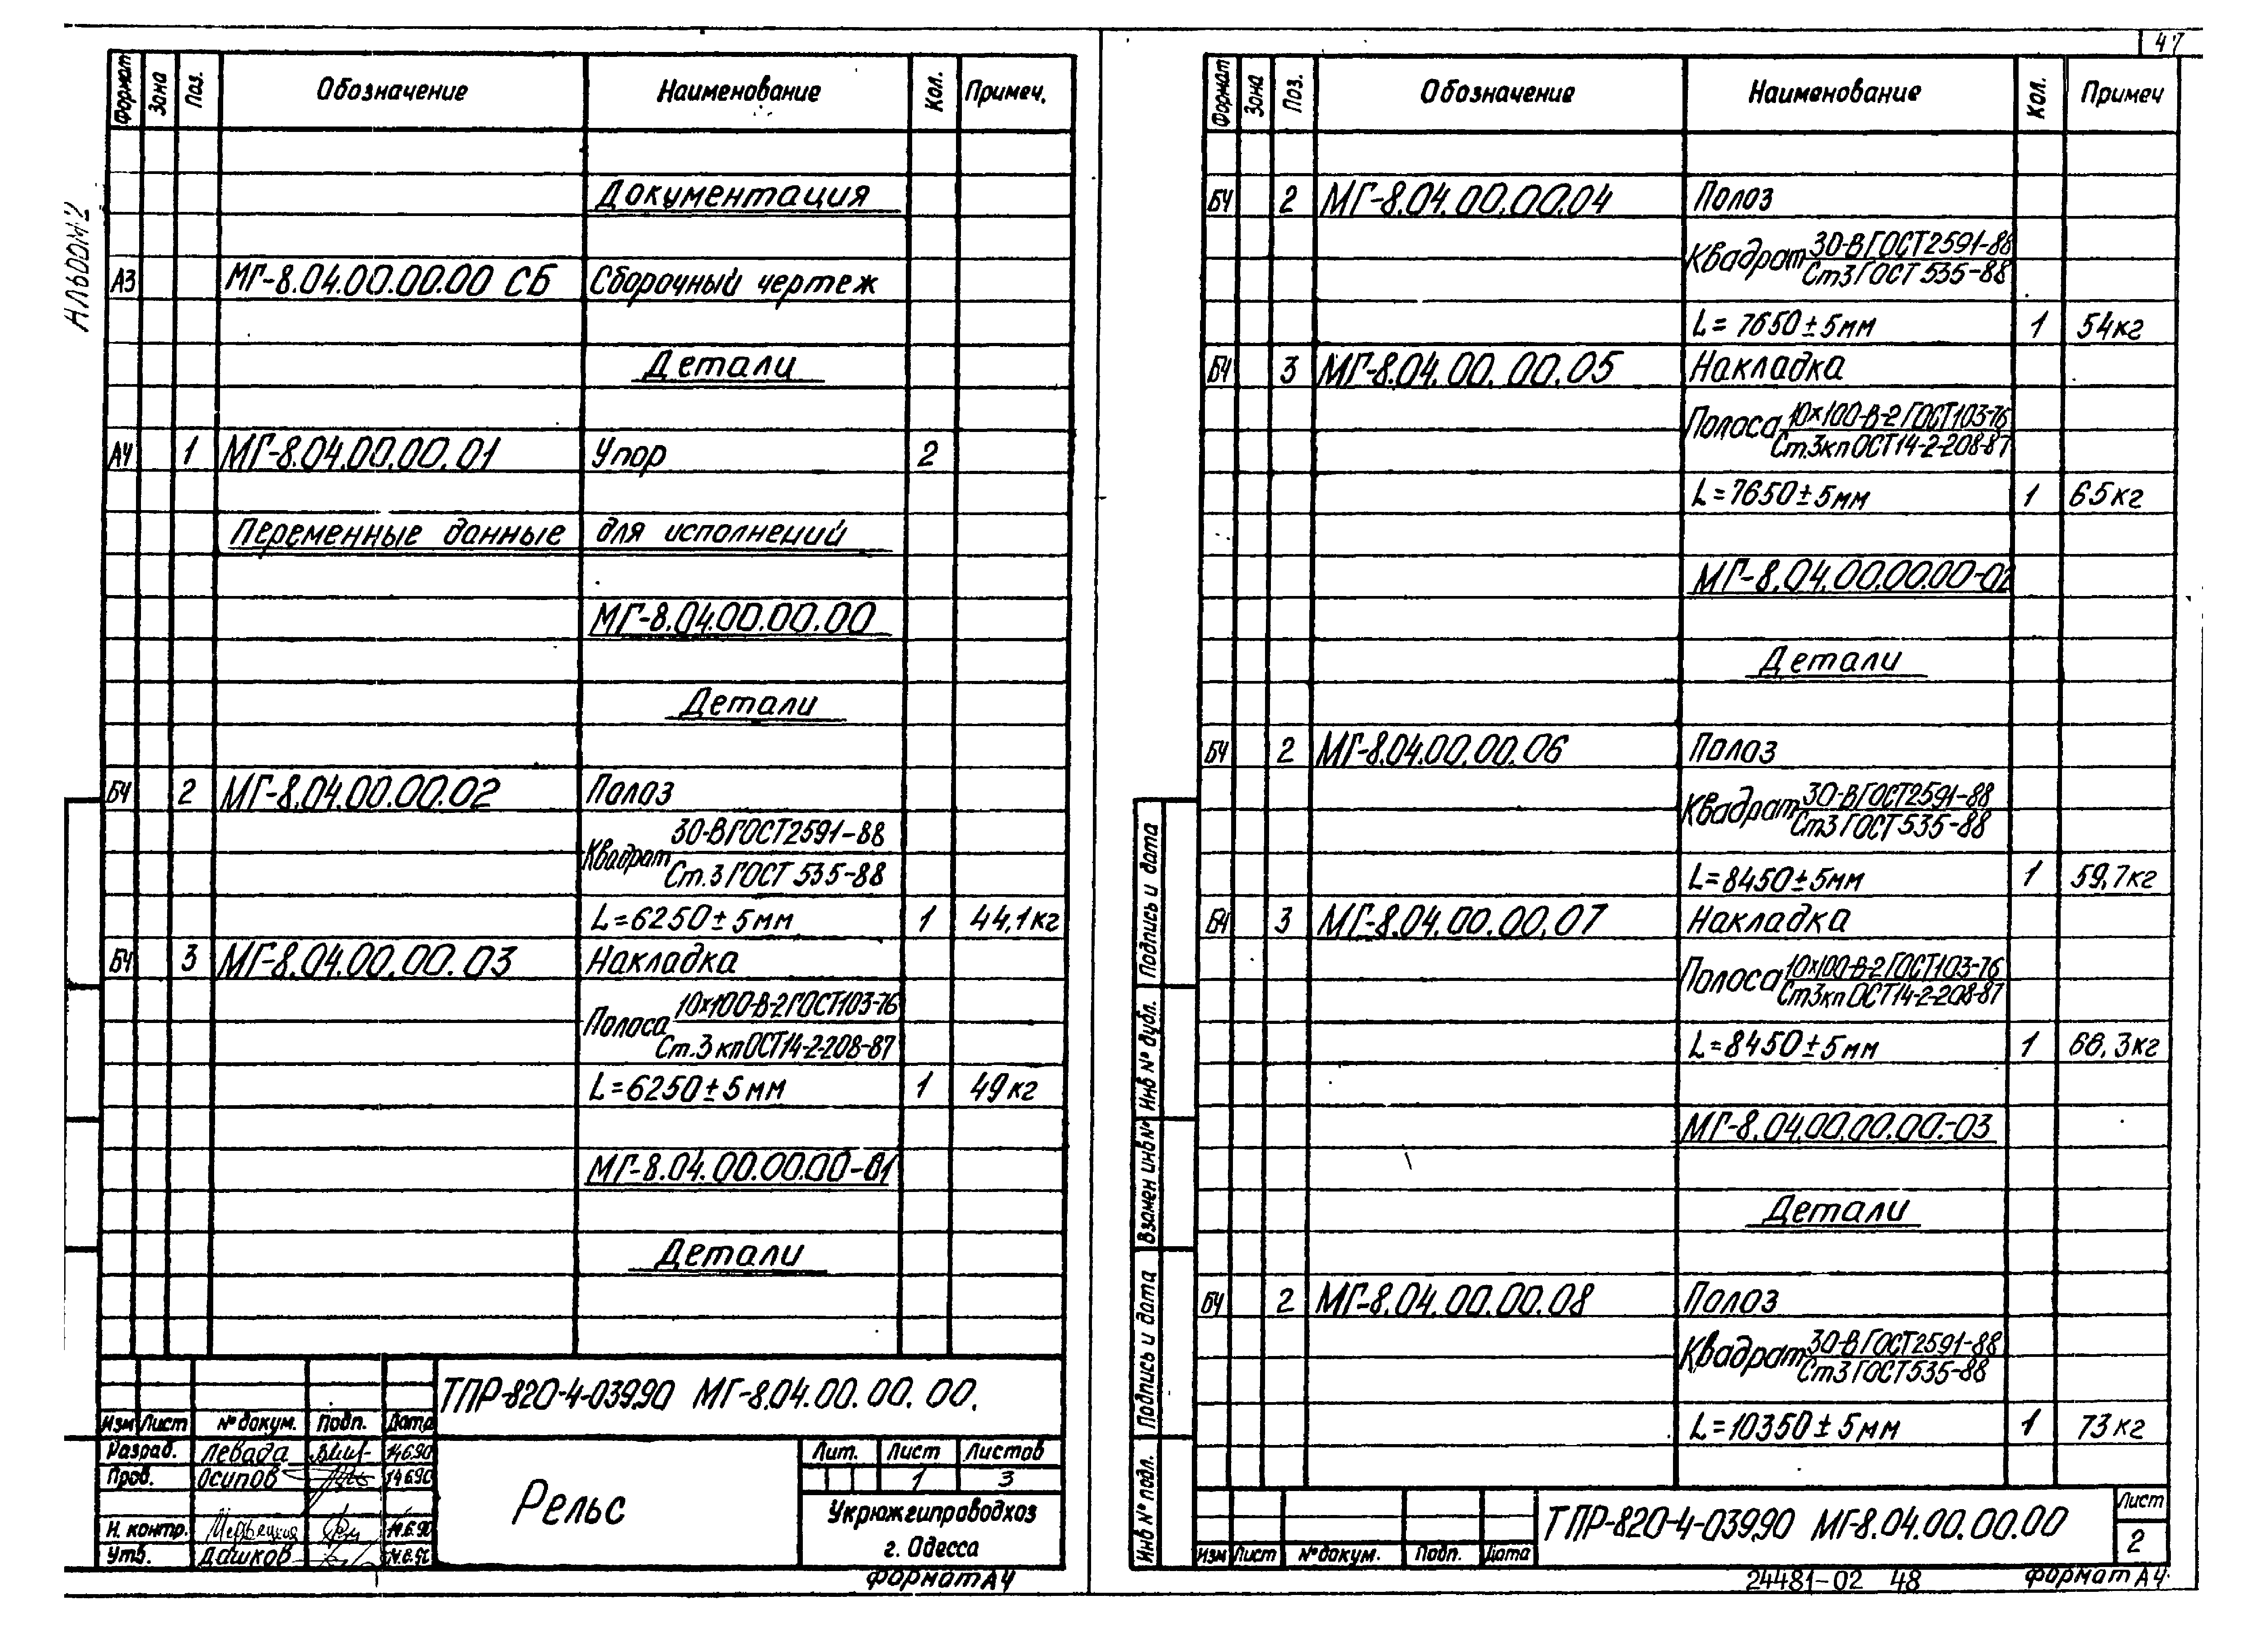 Альбом 2
Формат Зона Поз. Обозначение Наименование Кол. Примеч.
Документация
А3 МГ-8.04.00.00.00 СБ Сборочный чертеж
Детали
А4 1 МГ-8.04.00.00.01 Упор 2
Переменные данные для исполнений
МГ-8.04.00.00.00
Детали
БЧ 2 МГ-8.04.00.00.02 Полоз
30-В ГОСТ 2591-88
Квадрат
Ст.3 ГОСТ 535-88
L=6250±5мм 1 44,1кг
БЧ 3 МГ-8.04.00.00.03 Накладка
10х100-В-2 ГОСТ 103-76
Полоса
Ст.3 кп ОСТ 14-2-208-87
L=6250±5мм 1 49кг
МГ-8.04.00.00.00-01
Детали
ТПР-820-4-039.90 МГ-8.04.00.00.00.
Изм Лист № докум. Подп. Дата
Разраб. Левада 14.6.90
Пров. Осипов 14.6.90
Н. контр. 14.6.90
Утв. Дашков
Рельс
Лит. Лист Листов
1 3
Укрюжгипроводхоз
г. Одесса
Формат А4
47
Формат Зона Поз. Обозначение Наименование Кол. Примеч
БЧ 2 МГ-8.04.00.00.04 Полоз
30-В ГОСТ 2591-88
Квадрат
Ст3 ГОСТ 535-88
L=7650±5мм 1 54кг
БЧ 3 МГ-8.04.00.00.05 Накладка
10х100-В-2 ГОСТ 103-76
Полоса
Ст.3кп ОСТ 14-2-208-87
L=7650±5мм 1 65кг
МГ-8.04.00.00.00-02
Детали
БЧ 2 МГ-8.04.00.00.06 Полоз
30-В ГОСТ 2591-88
Квадрат
Ст3 ГОСТ 535-88
L=8450±5мм 1 59,7кг
БЧ 3 МГ-8.04.00.00.07 Накладка
10х100-В-2 ГОСТ 103-76
Полоса
Ст3кп ОСТ 14-2-208-87
L=8450±5мм 1 68,3кг
МГ-8.04.00.00.00-03
Детали
БЧ 2 МГ-8.04.00.00.08 Полоз
30-В ГОСТ 2591-88
Квадрат
Ст3 ГОСТ 535-88
L=10350±5мм 1 73кг
Подпись и дата
Инв № дубл.
Взамен инв №
Подпись и дата
Инв № подл.
Изм Лист № докум. Подп. Дата
ТПР-820-4-039.90 МГ-8.04.00.00.00
Лист
2
24481-02 48
Формат А4